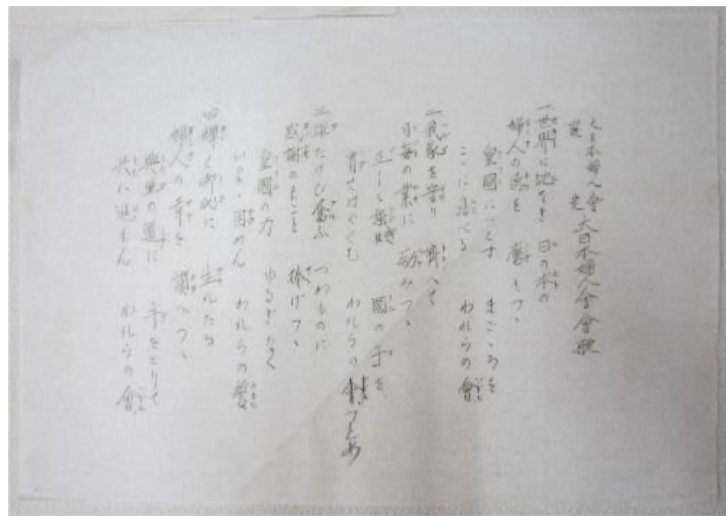 大日本婦人會選定 大日本婦人會會歌
一 世界に比なき 日の本の
婦人の徳を 磨きつゝ
皇國につくす まごゝろを
こゝに める われらの會
二 我家を守り 齊へて
日毎の業に 励みつゝ
正しく 國の子を
育てはぐくむ われらの つとめ
三 雄たけび奮ふ つわものに
感謝のまこと 捧げつゝ
皇國の力 ゆるぎなく
いよゝ固めん われらの誓
四 輝く御代に 生れたる
婦人の幸を 讃へつゝ
興亜の道に 手をとりて
共に進まん われらの會